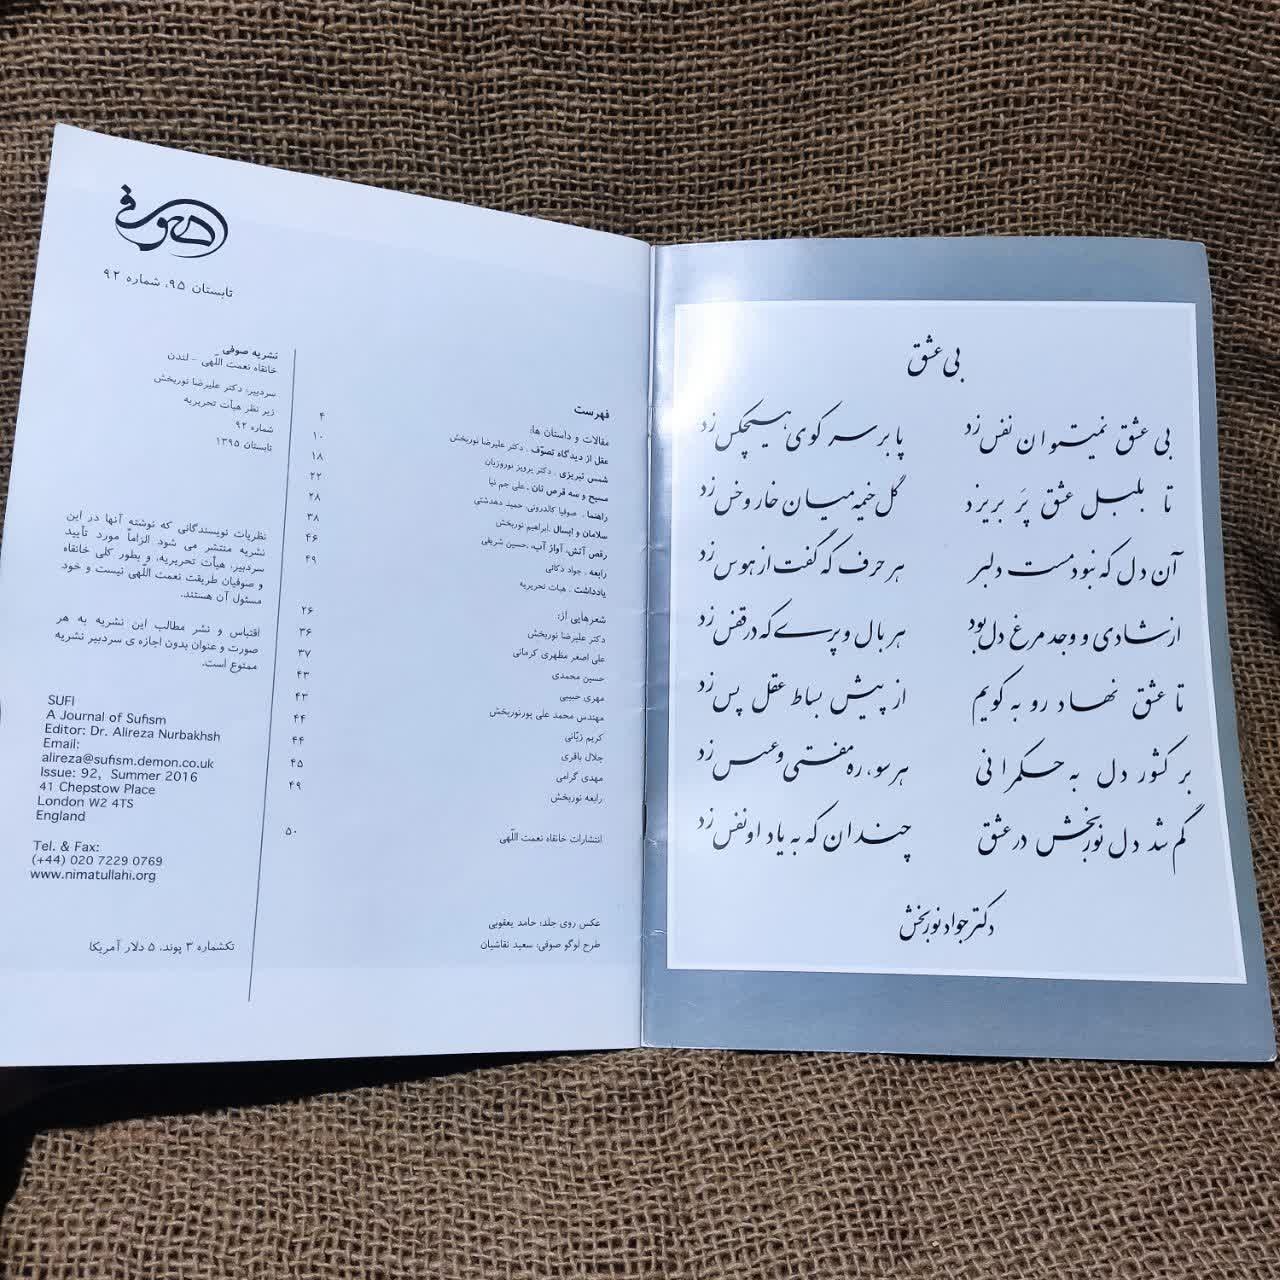 بی عشق
بی عشق نمیتوان نفس زد پا بر سر کوی هیچکس زد
تا بلبل عشق پَر بریزد گل خیمه میان خار و خس زد
آن دل که نبود مست دلبر هر حرف که گفت از هوس زد
از شادی و وجد مرغ دل بود هر بال و پری که در قفس زد
تا عشق نهاد رو به کویم از پیش بساط عقل پس زد
بر کشور دل به حکمرانی هر سو، ره مفتی و عسس زد
گم شد دل نوربخش در عشق چندان که به یاد او نفس زد
دکتر جواد نوربخش
صوفی
تابستان ۹۵، شماره ۹۲
فهرست
مقالات و داستان ها:
عقل از دیدگاه تصوّف . دکتر علیرضا نوربخش ۴
شمس تبریزی . دکتر پرویز نوروزیان ۱۰
مسیح و سه قرص نان . علی جم نیا ۱۸
راهنما . صوفیا کالدرونی حمید دهدشتی ۲۲
سلامان و ابسال . ابراهیم نوربخش ۲۸
رقص آتش، آواز آب . حسین شریفی ۳۸
رابعه . جواد ذکائی ۴۶
یادداشت . هیأت تحریریه ۴۹
شعرهایی از:
دکتر علیرضا نوربخش ۲۶
علی اصغر مظهری کرمانی ۳۶
حسین محمدی ۳۷
مهری حبیبی ۴۳
مهندس محمد علی پورنوربخش ۴۳
کریم زیّانی ۴۴
جلال باقری ۴۴
مهدی گرامی ۴۵
رابعه نوربخش ۴۹
انتشارات خانقاه نعمت اللّهی ۵۰
عکس روی جلد: حامد یعقوبی
طرح لوگو صوفی: سعید نقاشیان
نشریه صوفی
خانقاه نعمت اللّهی - لندن
سردبیر: دکتر علیرضا نوربخش
زیر نظر هیأت تحریریه
شماره ۹۲
تابستان ۱۳۹۵
نظریات نویسندگانی که نوشته آنها در این
نشریه منتشر می شود الزاماً مورد تأیید
سردبیر، هیأت تحریریه، و بطور کلی خانقاه
و صوفیان طریقت نعمت اللّهی نیست و خود
مسئول آن هستند.
اقتباس و نشر مطالب این نشریه به هر
صورت و عنوان بدون اجازه ی سردبیر نشریه
ممنوع است.
SUFI
A Journal of Sufism
Editor: Dr. Alireza Nurbakhsh
Email:
alireza@sufism.demon.co.uk
Issue: 92, Summer 2016
41 Chepstow Place
London W2 4TS
England
Tel. & Fax:
(+44) 020 7229 0769
www.nimatullahi.org
تکشماره ۳ پوند، ۵ دلار آمریکا